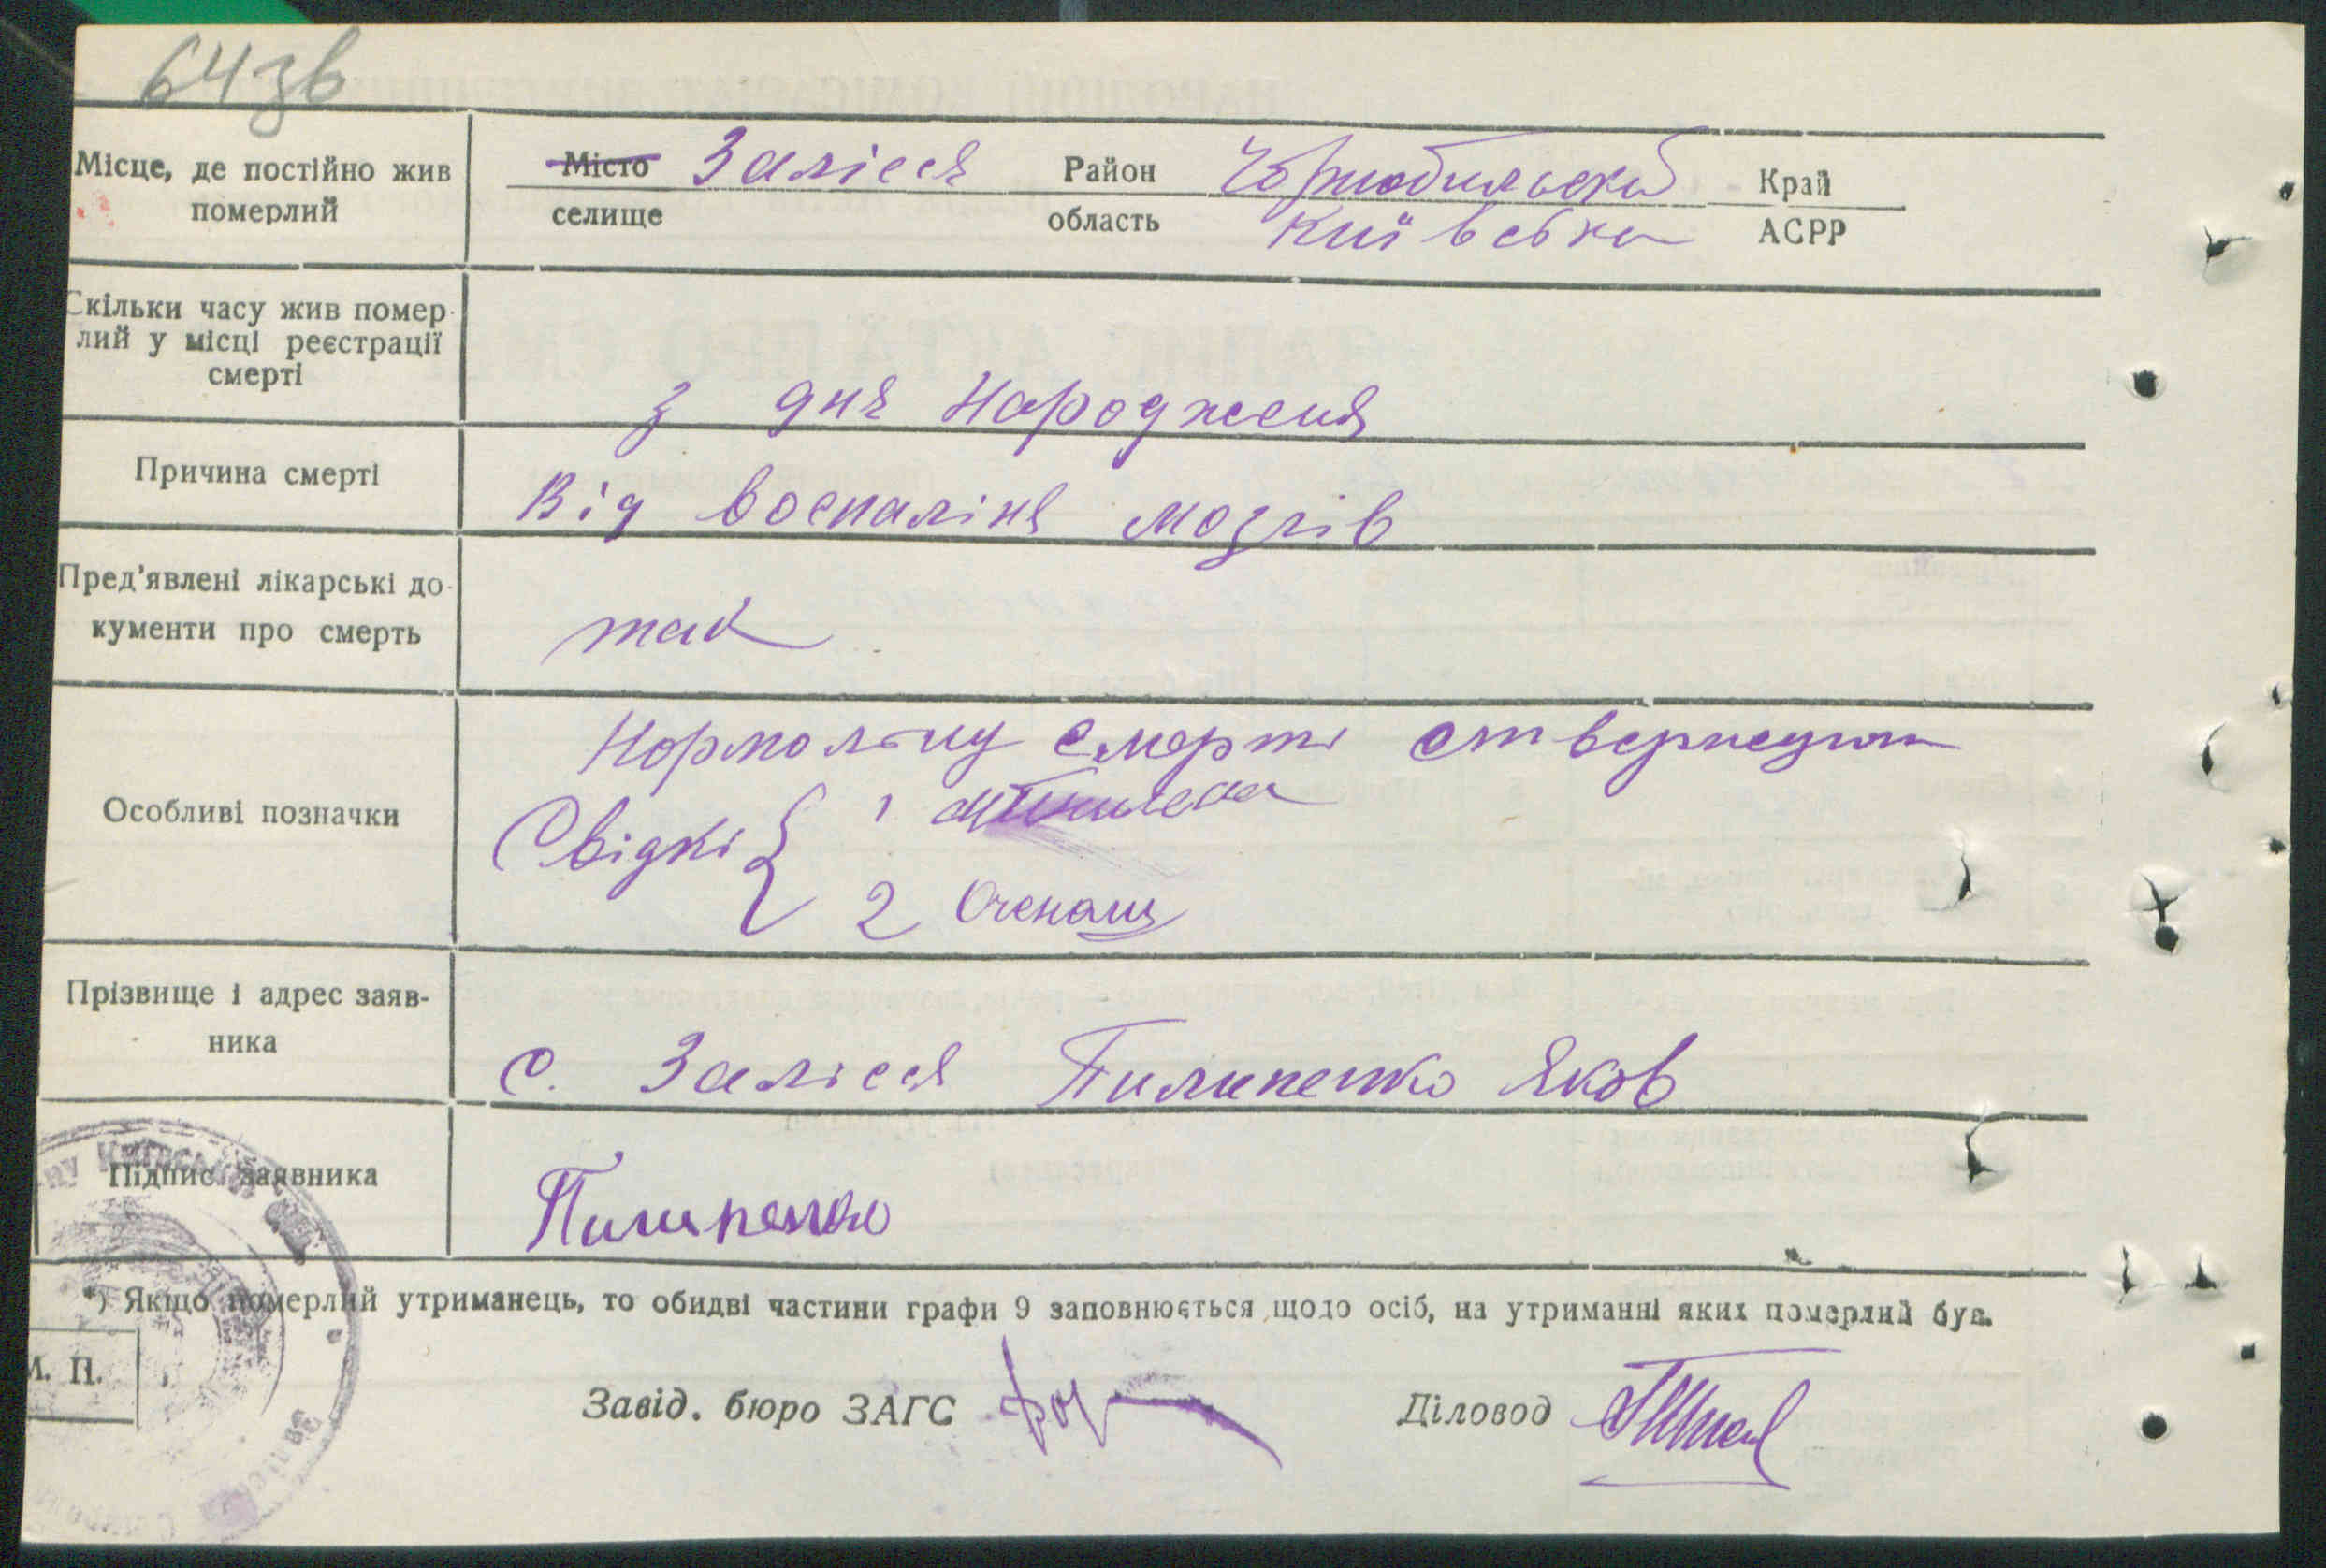 64зв
Місце, де постійно жив
померлий
Місто Залісся Район Чорнобильский Край
селище область Київська АСРР
Скільки часу жив помер-
лий у місці реєстрації
смерті
з дня Народженя
Причина смерті
Від воспаліня мозгів
Пред'явлені лікарські до-
кументи про смерть
так
Особливі позначки
Нормольну смерть
Свідкі { 1
2 Оченаш
Прізвище і адрес заяв-
ника
с. Залісся Пилипенко Яков
Підпис заявника
Пилипенко
*) Якщо померлий утриманець, то обидві частини графи 9 заповнюється щодо осіб, на утриманні яких померлий був.
М. П.
Завід. бюро ЗАГС
Діловод